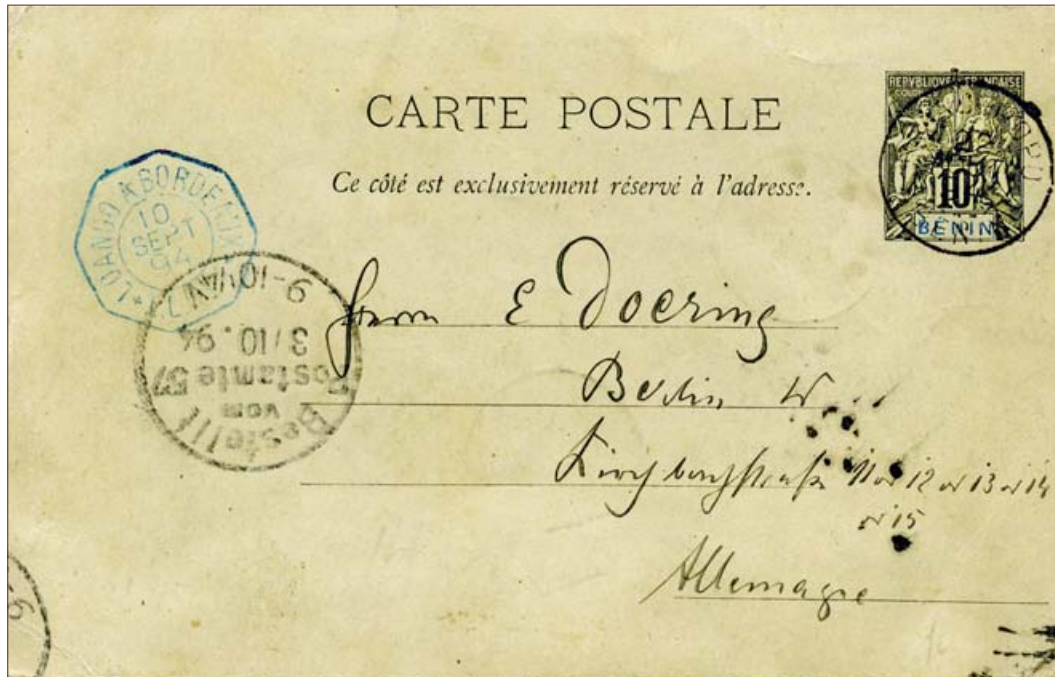 CARTE POSTALE
Ce côté est exclusivement réservé à l'adresse.
REPVBLIQVE FRANÇAISE
10
BÉNIN
LOANGO A BORDEAUX
10
SEPT
94
Bestellt
vom
Postamte 57
3/10.94
9-10 1/4 V
Herrn E Doering
Berlin W
Kirchbachstraße 11 or 12 or 13 or 14
or 15
Allemagne